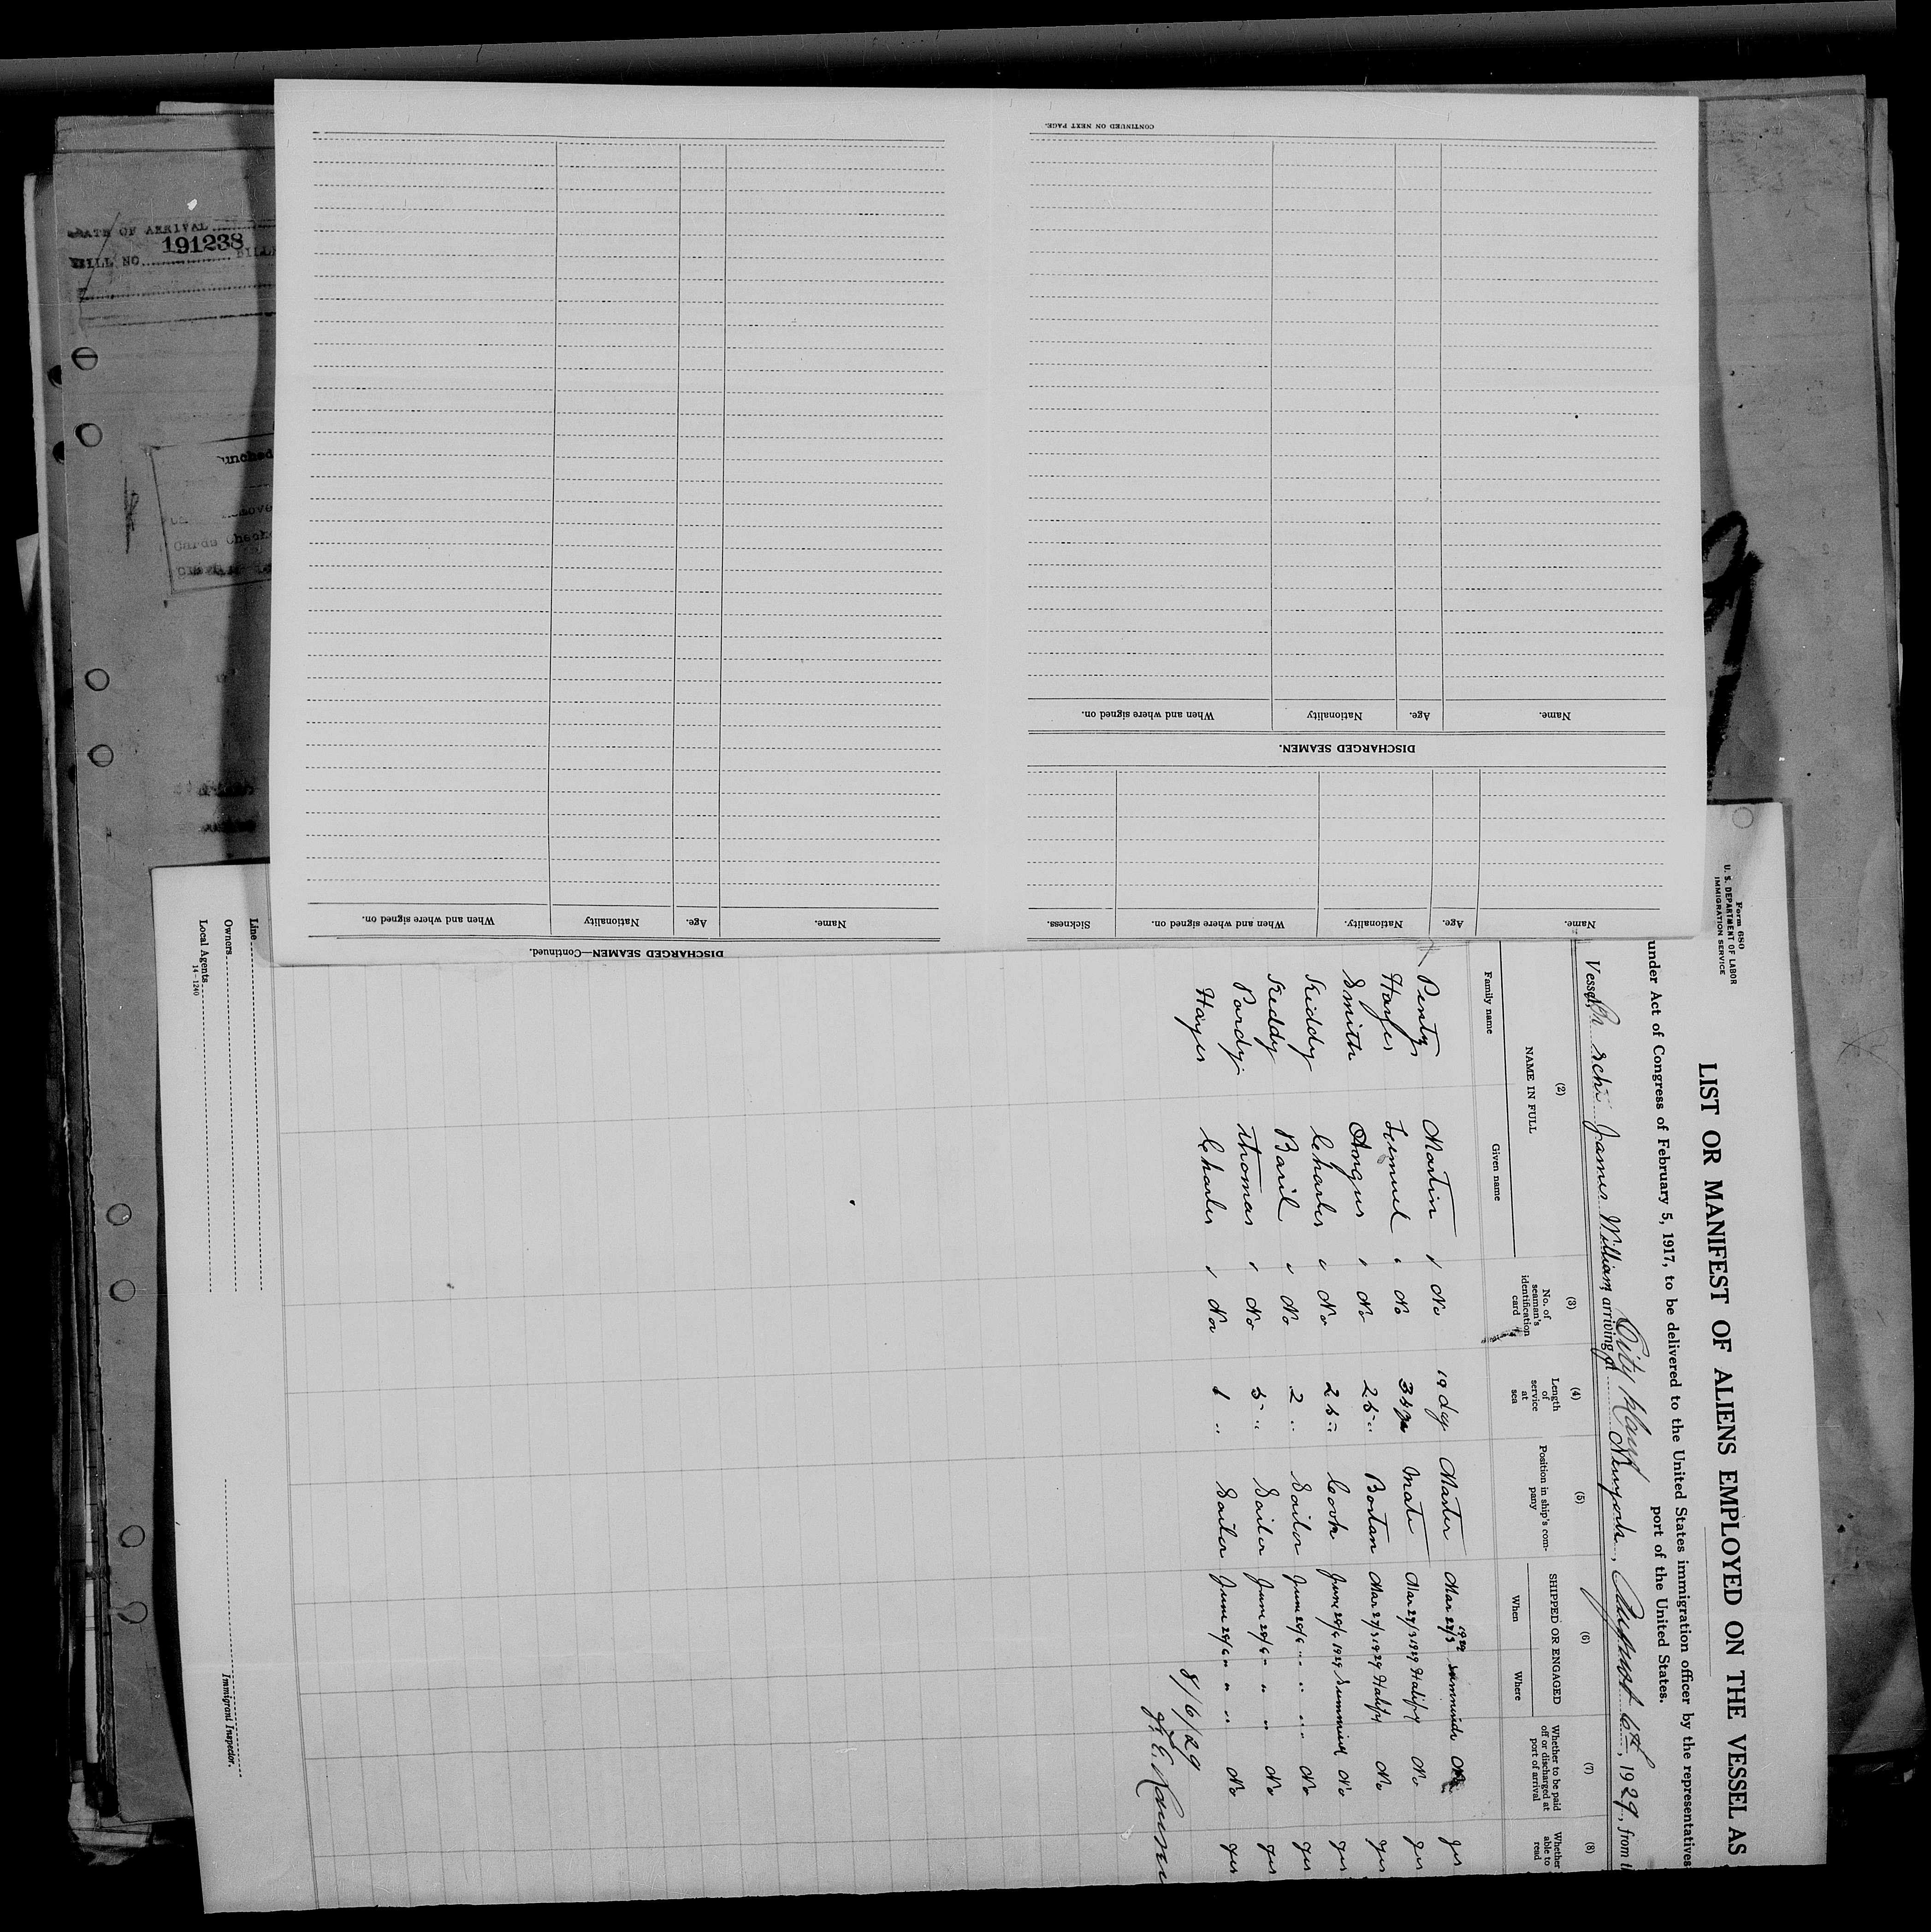 DATE OF ARRIVAL
191238
BILL NO.
unched
Cards Check
CONTINUED ON NEXT PAGE.
Name. Age. Nationality When and where signed on.
DISCHARGED SEAMEN.
Name. Age. Nationality. When and where signed on. Sickness.
DISCHARGED SEAMEN—Continued.
Name. Age. Nationality When and where signed on.
Form 680
U. S. DEPARTMENT OF LABOR
IMMIGRATION SERVICE
LIST OR MANIFEST OF ALIENS EMPLOYED ON THE VESSEL AS
under Act of Congress of February 5, 1917, to be delivered to the United States immigration officer by the representatives
port of the United States.
Vessel Br schr James William arriving at City Island Newyork, August 6th, 1929, from
(2) (3) (4) (5) (6) (7) (8)
NAME IN FULL
Family name Given name
No. of seaman's identification card
Length of service at sea
Position in ship's company
SHIPPED OR ENGAGED
When Where
Whether to be paid off or discharged at port of arrival
Whether able to read
Penty Martin No 19 Master Mar 27/3 1929 No yes
Hayes Lemuel No 35 Mate Mar 27/3 1929 yes No
Smith Angus No 25 " Bostan Mar 27/3 1929 No yes
Kiddy Charles No 25 " Cook June 28/6 1929 No yes
Keddy Basil No 2 " Sailor June 28/6 " " " No yes
Pardy Thomas No 5 " Sailer June 28/6 " " " No yes
Hayes Charles No 1 " Sailor June 28/6 " " " No yes
8/6/29
Line
Owners
Local Agents
14-1240
Immigrant Inspector.